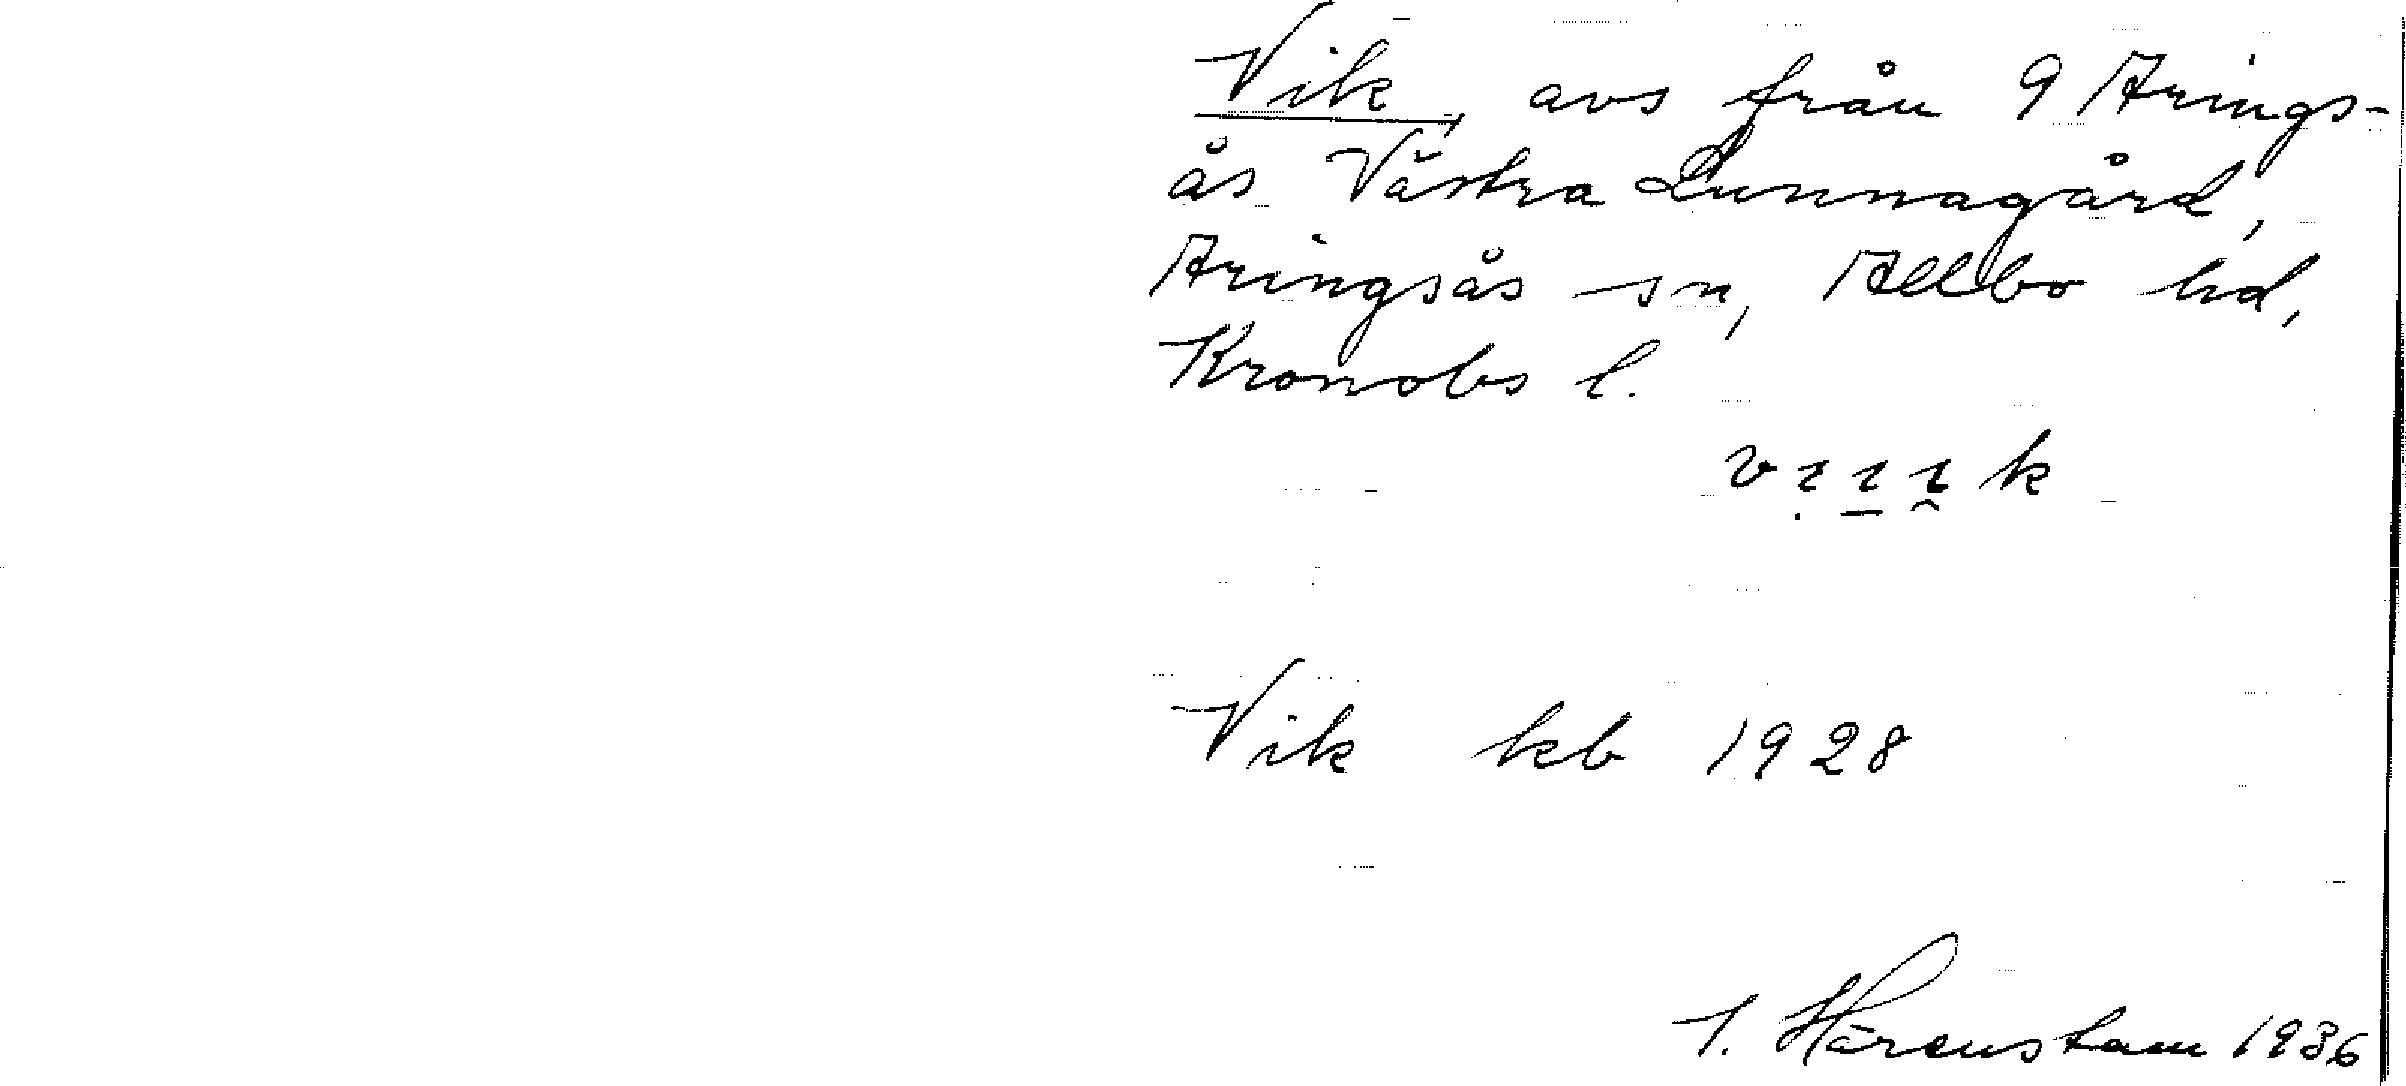 Vik, avs från 9 Arings-
ås Västra Lunnagård,
Aringsås sn, Allbo hd,
Kronobs l.
Vik kb 1928
I. Härenstam 1936